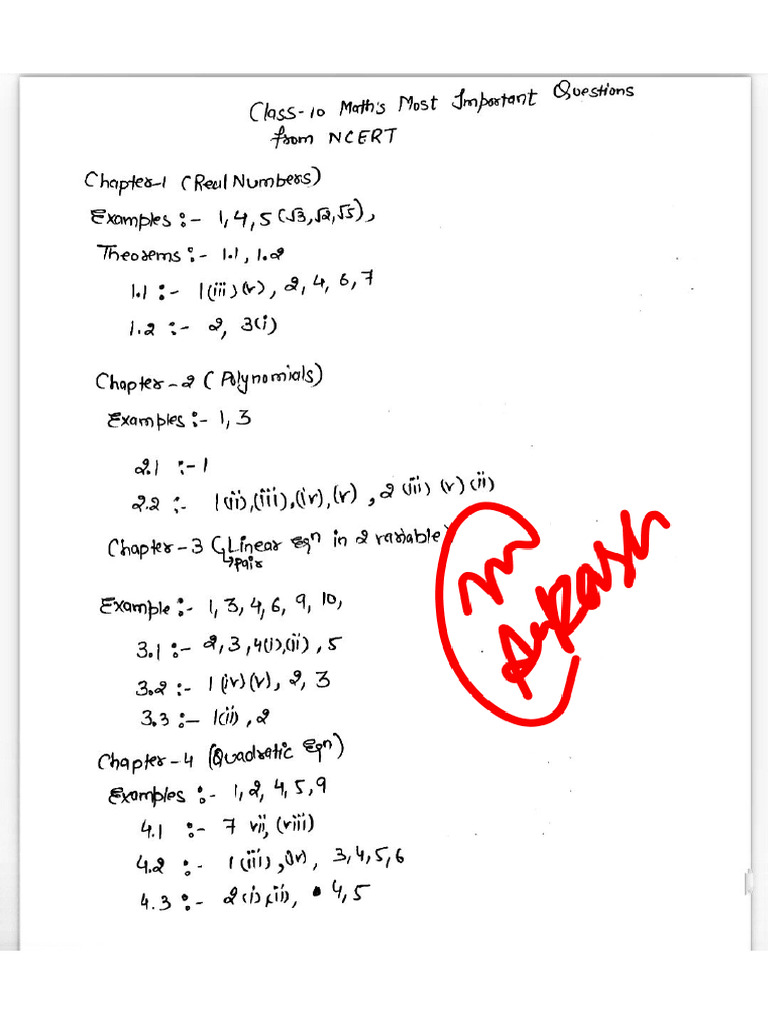 Class-10 Math's Most Important Questions
from NCERT
Chapter-1 (Real Numbers)
Examples :- 1, 4, 5 (√3, √2, √5),
Theorems :- 1.1, 1.2
1.1 :- 1(iii)(v), 2, 4, 6, 7
1.2 :- 2, 3(i)
Chapter-2 (Polynomials)
Examples :- 1, 3
2.1 :- 1
2.2 :- 1(ii),(iii),(iv),(v), 2(iii)(v)(ii)
Chapter-3 (Linear Eqn in 2 variable)
pair
Example :- 1, 3, 4, 6, 9, 10,
3.1 :- 2, 3, 4(i),(ii), 5
3.2 :- 1(iv)(v), 2, 3
3.3 :- 1(ii), 2
Chapter-4 (Quadratic Eqn)
Examples :- 1, 2, 4, 5, 9
4.1 :- 7 vii, (viii)
4.2 :- 1(iii), (iv), 3, 4, 5, 6
4.3 :- 2(i),(ii), 4, 5
m